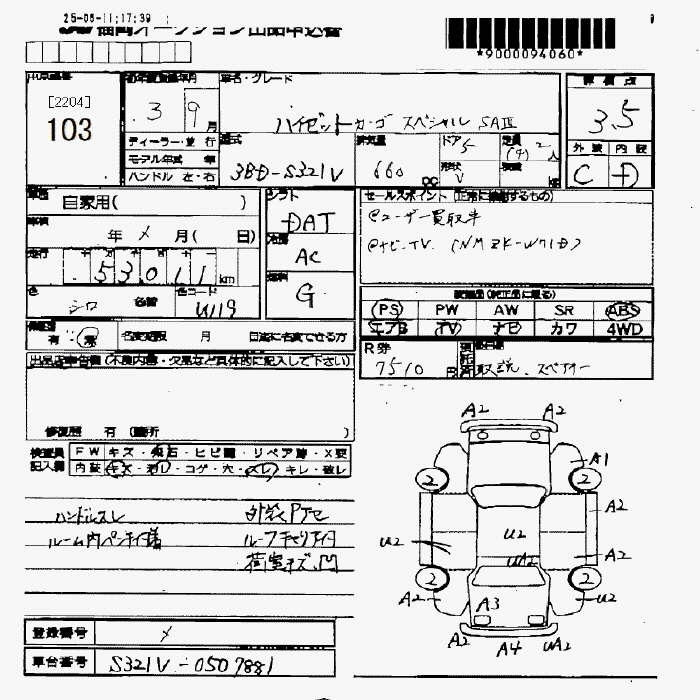 25-06-11;17:39
オークション出品申込書
*9000094060*
[2204]
103
初年度登録年月
3 9 月
車名・グレード
ハイゼットカーゴ スペシャル SAⅢ
評価点
3.5
ディーラー・並行
モデル年式 年
ハンドル 左・右
型式
3BD-S321V
排気量
660 cc
ドア
5
形状
V
定員
2
(4) 人
積載
kg
外装 内装
C D
車歴
自家用( )
シフト
DAT
セールスポイント (正常に接続するもの)
@ユーザー買取車
@ナビ・TV (NMZK-W71D)
車検
年 〆 月( 日)
冷房
AC
走行
53,011 km
燃料
G
色
シロ
色コード
W19
装備品(純正品に限る)
PS PW AW SR ABS
エアB TV ナビ カワ 4WD
有・無
名変期限 月 日迄に名変できる方
R券
7510 円
取説、スペアキー
出品店申告欄 (不良内容・欠品など具体的に記入して下さい)
修復歴 有 (箇所 )
検査員
記入欄
FW キズ・飛石・ヒビ割・リペア跡・X要
内装 キズ・汚レ・コゲ・穴・スレ・キレ・破レ
ハンドルスレ
外装Pアセ
ルーム内ペンキ付様
ルーフキャリア付
荷室キズ、凹
A2 A2
A1
2 2
A2
U2
U2
UA2
A2
2 2
A2
U2
A3
A2 A4 UA2
登録番号
〆
車台番号
S321V-0507881